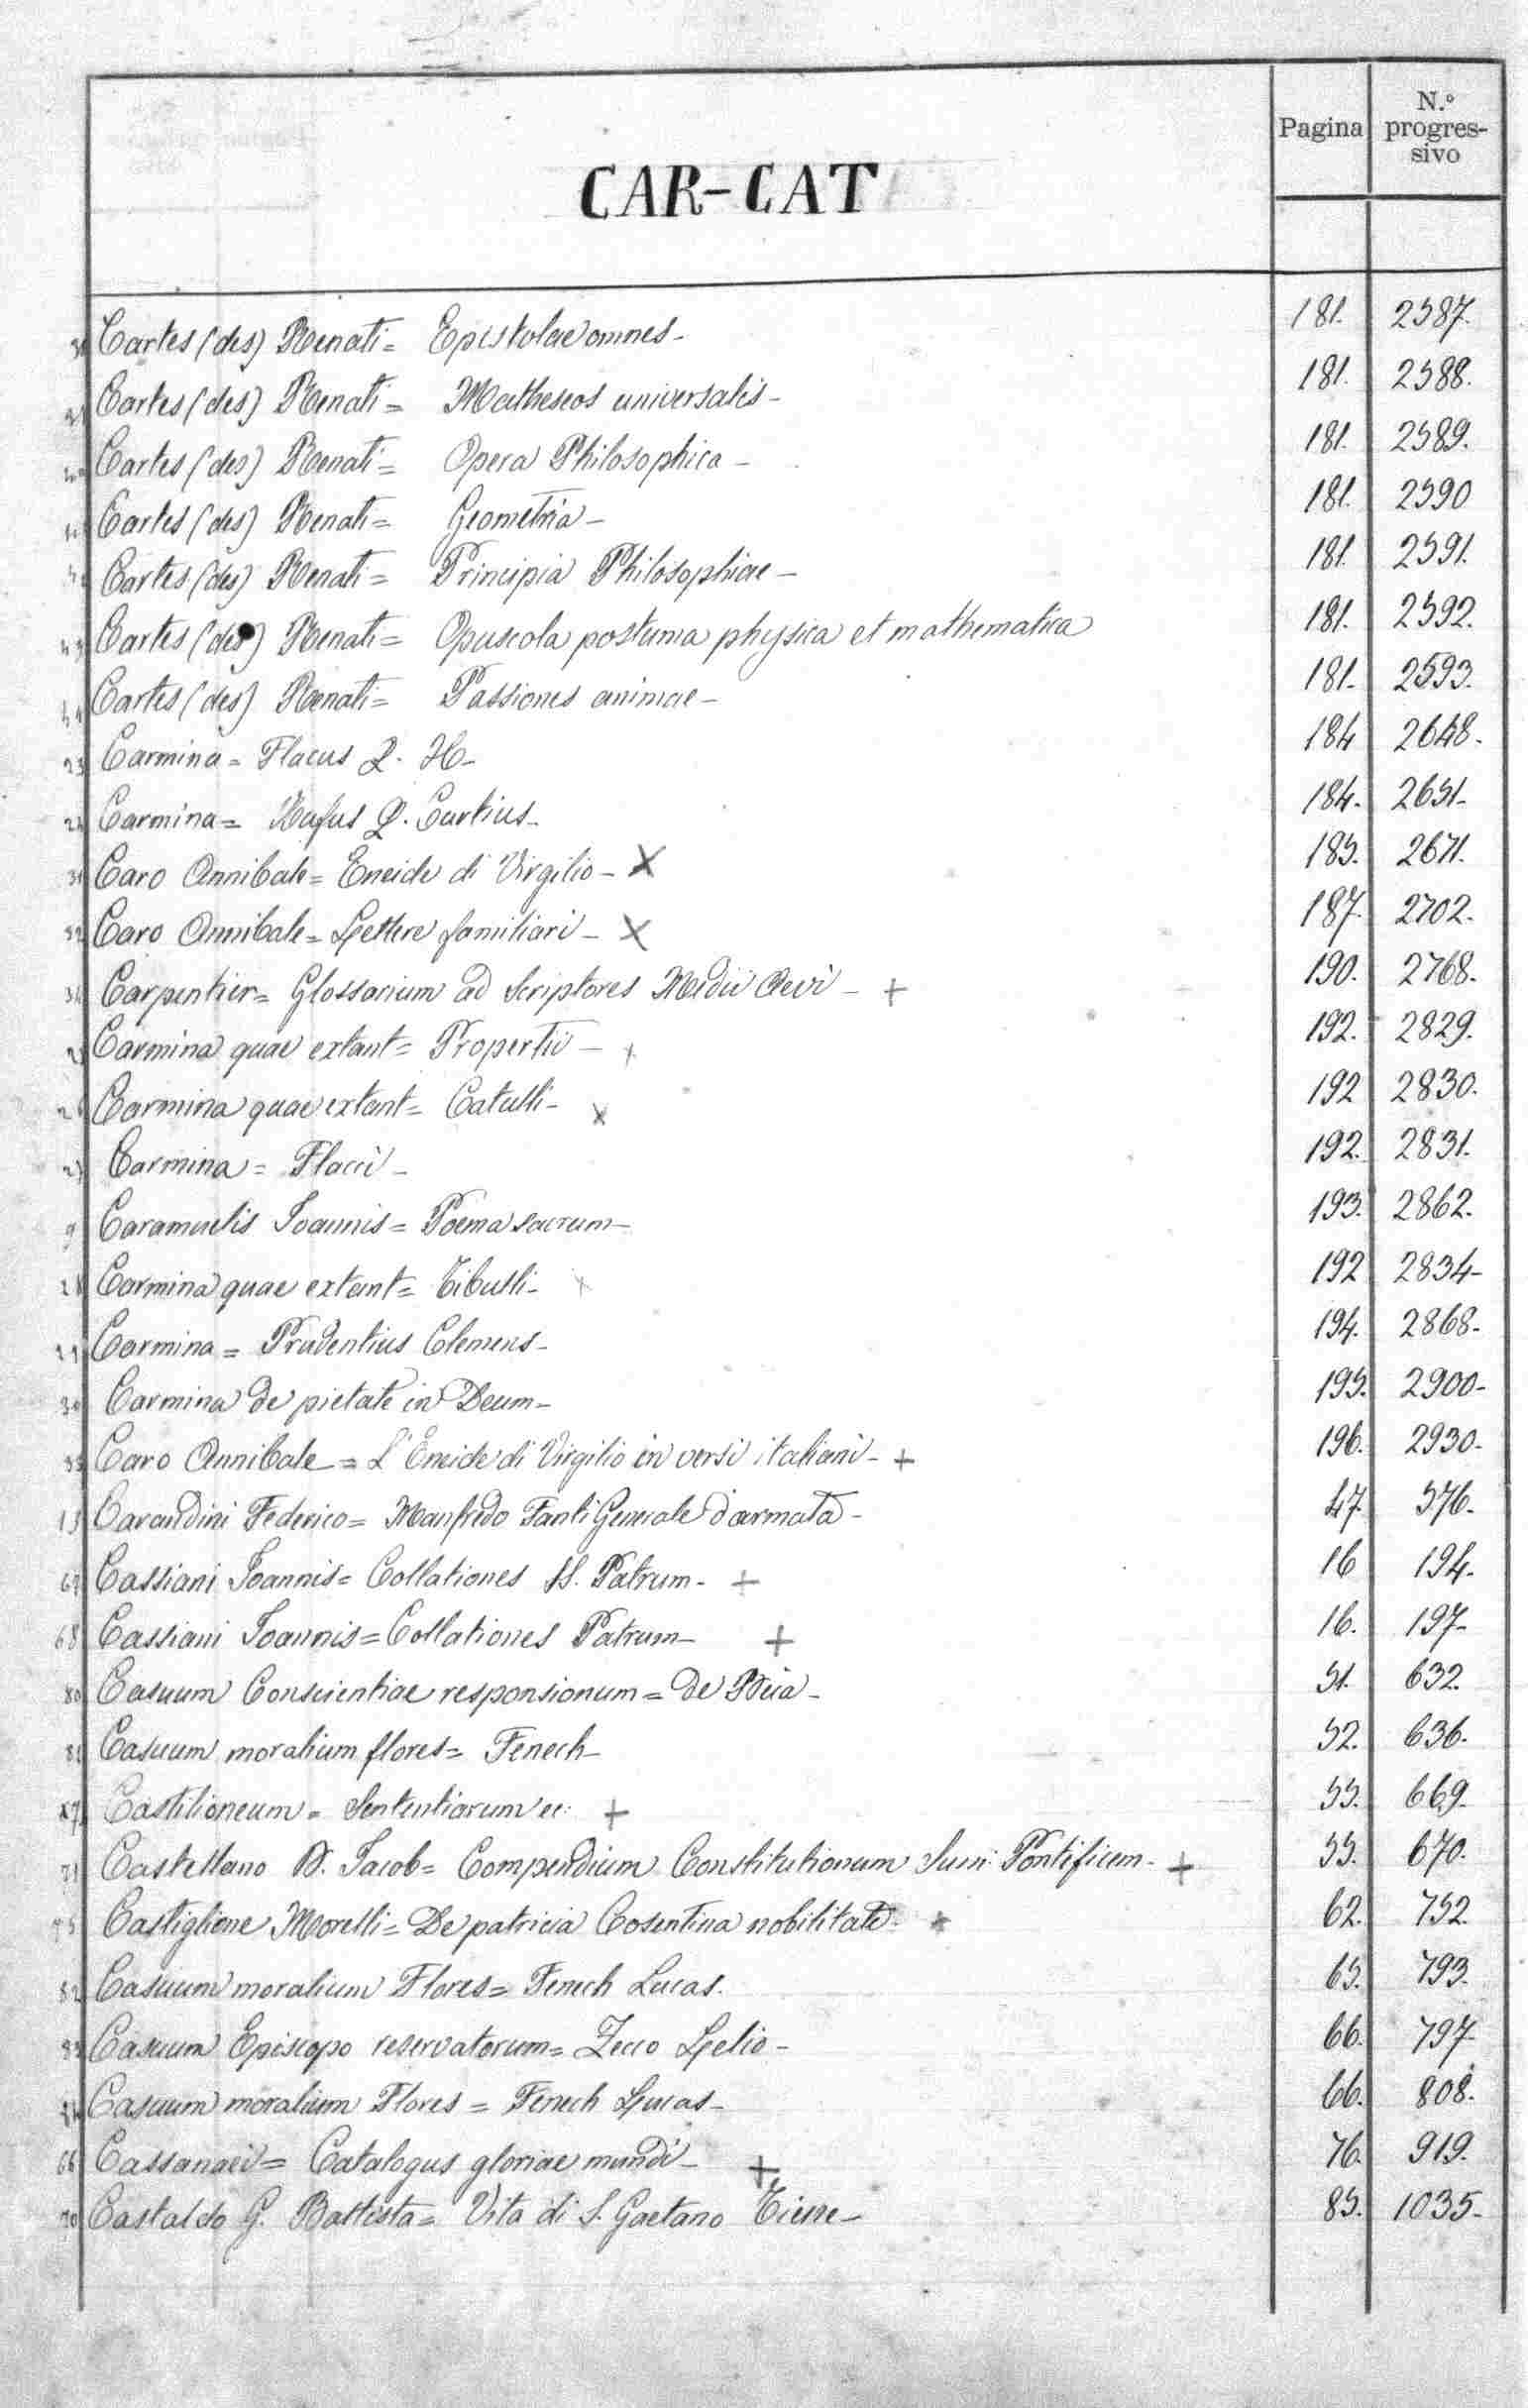 Pagina
N.º progres-
sivo
CAR-CAT
Cartes (des) Renati = Epistolae omnes - 181. 2587.
Cartes (des) Renati = Matheseos universalis - 181. 2588.
Cartes (des) Renati = Opera Philosophica - 181. 2589.
Cartes (des) Renati = Geometria - 181. 2590
Cartes (des) Renati = Principia Philosophiae - 181. 2591.
Cartes (des) Renati = Opuscola postuma physica et mathematica 181. 2592.
Cartes (des) Renati = Passiones animae - 181- 2593.
23 Carmina = Flacus Q. H- 184 2648.
24 Carmina = Rufus Q. Curtius- 184. 2651-
31 Caro Annibale = Eneide di Virgilio - X 185. 2671.
32 Caro Annibale = Lettere familiari - X 187. 2702.
34 Carpentier = Glossarium ad Scriptores Medii Aevi - + 190. 2768.
Carmina quae extant = Propertii - + 192. 2829.
Carmina quae extant = Catulli - x 192 2830.
Carmina = Flacci - 192. 2831.
9 Caramuelis Ioannis = Poema sacrum- 193. 2862.
28 Carmina quae extant = Tibulli - x 192 2834-
29 Carmina = Prudentius Clemens- 194. 2868-
30 Carmina de pietate in Deum- 195. 2900-
33 Caro Annibale = L'Eneide di Virgilio in versi italiani - + 196. 2930-
13 Carandini Federico = Manfredo Fanti Generale d'armata - 47. 576.
67 Cassiani Ioannis = Collationes SS. Patrum - + 16 194-
68 Cassiani Ioannis = Collationes Patrum - + 16. 197-
80 Casuum Conscientiae responsionum = de - 51. 632.
81 Casuum moralium flores = Fenech- 52. 636.
Castilioneum = Sententiarum ec: + 55. 669-
71 Castellano D. Jacob = Compendium Constitutionum Sum: Pontificum - + 55. 670.
Castiglione Morelli = De patricia Cosentina nobilitate - + 62. 752.
82 Casuum moralium Flores = Fenech Lucas. 65. 793.
83 Casuum Episcopo reservatorum = Zecco Lelio - 66. 797-
Casuum moralium Flores = Fenech Lucas - 66. 808.
66 Cassanaei = Catalogus gloriae mundi - + 76. 919.
70 Castaldo G. Battista = Vita di S. Gaetano Tiene - 85. 1035-